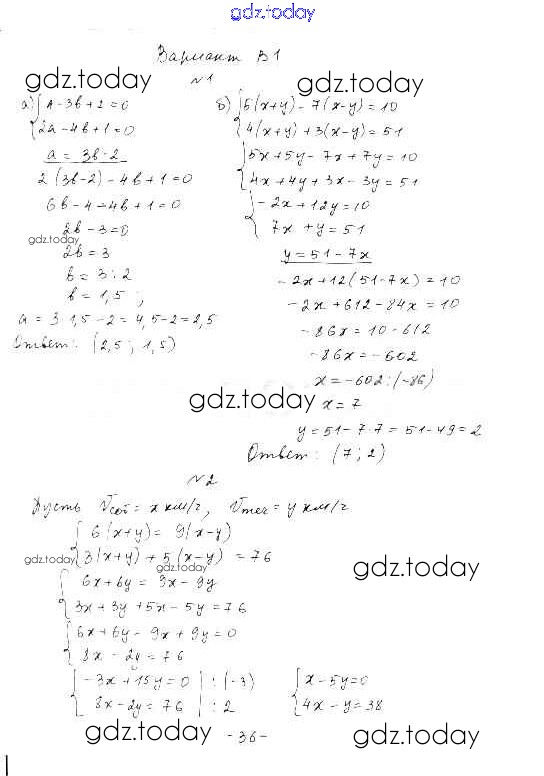 gdz.today
Вариант В1
№1
gdz.today gdz.today
а) { а - 3в + 2 = 0
2а - 4в + 1 = 0
а = 3в - 2
2(3в - 2) - 4в + 1 = 0
6в - 4 - 4в + 1 = 0
2в - 3 = 0
gdz.today
2в = 3
в = 3 : 2
в = 1,5 ;
а = 3 · 1,5 - 2 = 4,5 - 2 = 2,5
Ответ: (2,5 ; 1,5)
б) { 5(x+y) - 7(x-y) = 10
4(x+y) + 3(x-y) = 51
{ 5x + 5y - 7x + 7y = 10
4x + 4y + 3x - 3y = 51
{ -2x + 12y = 10
7x + y = 51
y = 51 - 7x
-2x + 12(51 - 7x) = 10
-2x + 612 - 84x = 10
-86x = 10 - 612
-86x = -602
x = -602 : (-86)
gdz.today
x = 7
y = 51 - 7·7 = 51 - 49 = 2
Ответ: (7 ; 2)
№2
Пусть Vсоб = x км/г, Vтеч = y км/г
{ 6(x+y) = 9(x-y)
3(x+y) + 5(x-y) = 76
gdz.today gdz.today gdz.today
{ 6x + 6y = 9x - 9y
3x + 3y + 5x - 5y = 76
{ 6x + 6y - 9x + 9y = 0
8x - 2y = 76
{ -3x + 15y = 0 | : (-3)
8x - 2y = 76 | : 2
{ x - 5y = 0
4x - y = 38
gdz.today - 36 - gdz.today